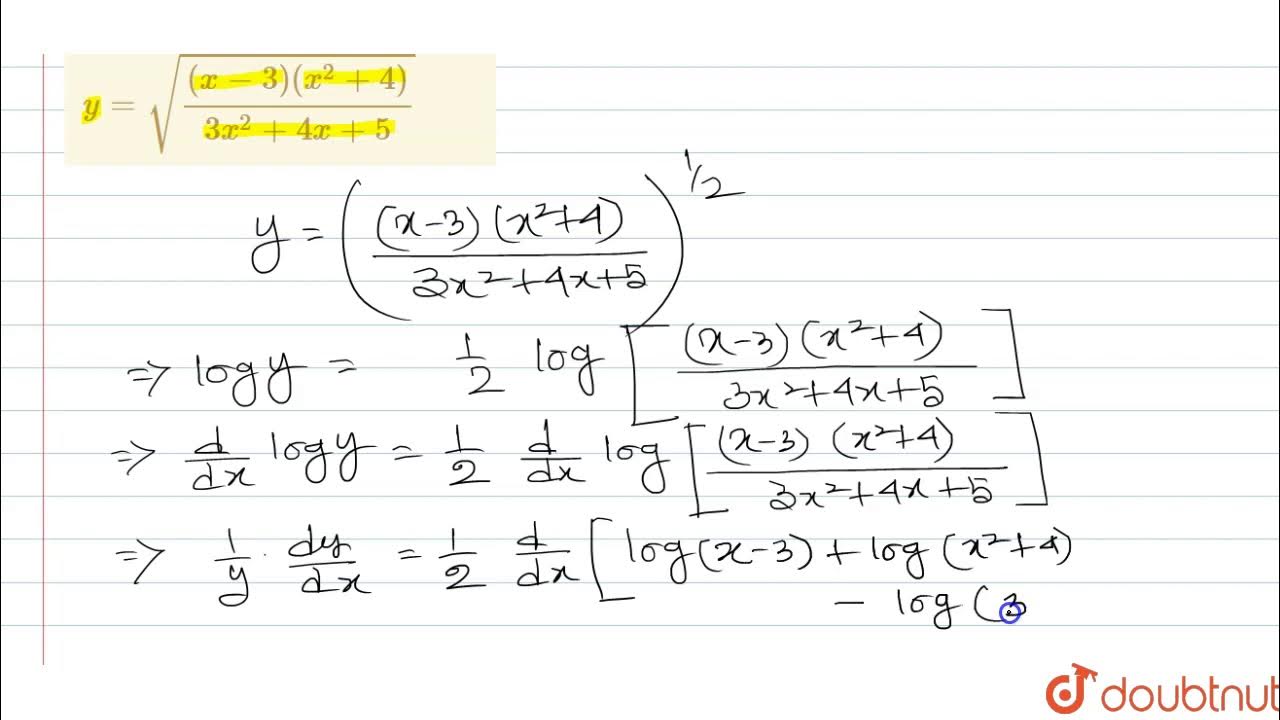 y = √((x − 3)(x² + 4) / (3x² + 4x + 5))
y = ((x-3)(x²+4) / 3x²+4x+5)^1/2
=> log y = 1/2 log [(x-3)(x²+4) / 3x²+4x+5]
=> d/dx log y = 1/2 d/dx log [(x-3)(x²+4) / 3x²+4x+5]
=> 1/y · dy/dx = 1/2 d/dx [log(x-3) + log(x²+4)
- log(3
doubtnut